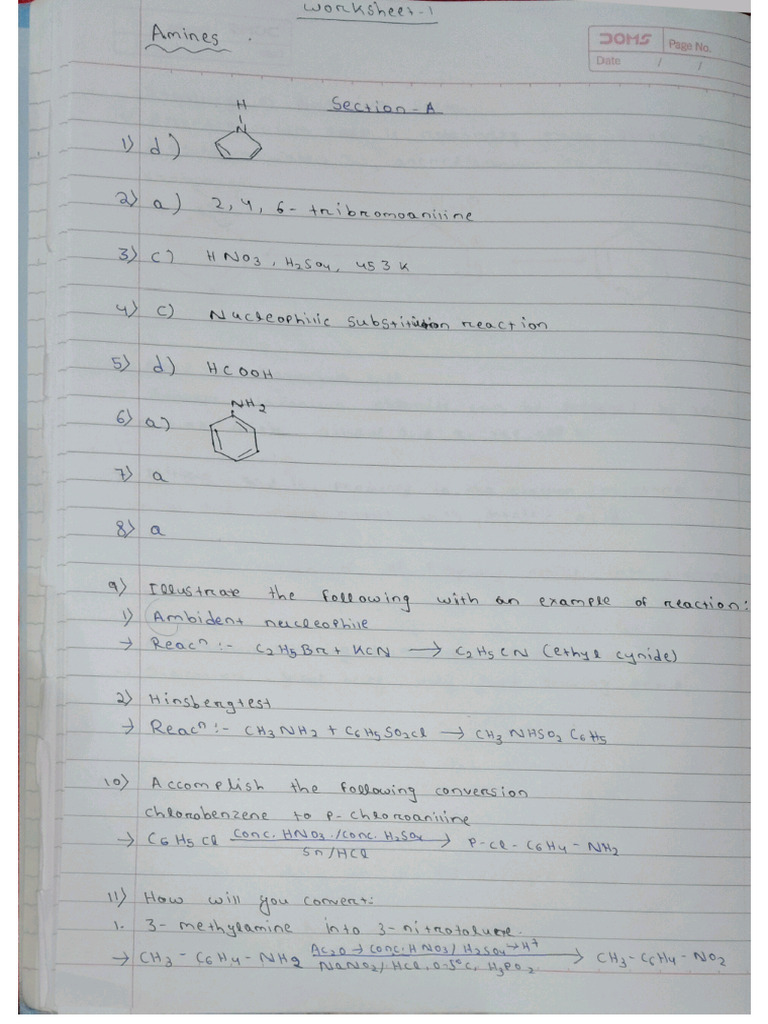 Worksheet-1
Amines.
DOMS
Page No.
Date / /
Section-A
H
N
1) d)
2) a) 2, 4, 6- tribromoaniline
3) c) HNO3, H2SO4, 453 K
4) c) Nucleophilic substitution reaction
5) d) HCOOH
NH2
6) a)
7) a
8) a
9) Illustrate the following with an example of reaction:
1) Ambident nucleophile
→ Reacⁿ :- C2H5Br + KCN → C2H5CN (ethyl cynide)
2) Hinsbergtest
→ Reacⁿ :- CH3NH2 + C6H5SO2Cl → CH3NHSO2C6H5
10) Accomplish the following conversion
chlorobenzene to p- chloroaniline
→ C6H5Cl conc. HNO3./conc. H2SO4 → p-Cl-C6H4-NH2
Sn/HCl
11) How will you convert:
1. 3- methylamine into 3-nitrotoluene.
→ CH3-C6H4-NH2 Ac2O → conc. HNO3/H2SO4 → H+ → CH3-C6H4-NO2
NaNO2/HCl, 0-5°C, H3PO2